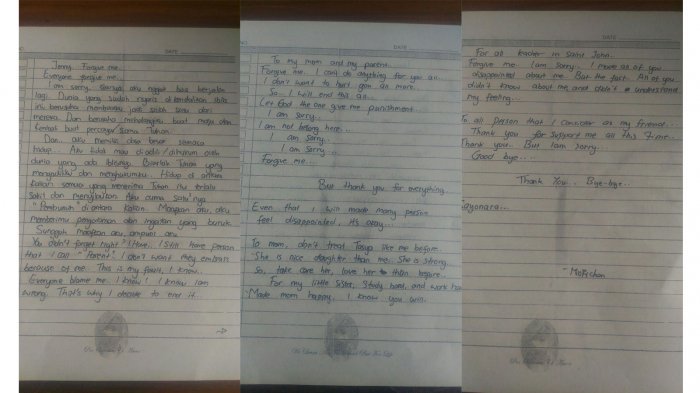 DATE
Jenny. Forgive me...
Everyone forgive me...
I am sorry. Karnya aku nggak bisa berjalan
lagi. Dunia yang sudah ngeris di kendalikan iblis
ini berusaha membuatku jadi salah satu dari
mereka. Dan berusaha menghalangiku buat maju dan
kembali buat percaya sama Tuhan.
Dan... aku memiliki dosa besar semasa
hidup... Aku tidak mau di adili / dihukum oleh
dunia yang ada iblisnya. Biarlah Tuhan yang
mengadiliku dan menghukumku. Hidup di antara
kalian semua yang menerima Tuhan itu terlalu
sakit dan menyakitkan. Aku cuma satu"nya
"Pembunuh" di antara kalian. Maafkan aku, aku
memberimu pengalaman dan ingatan yang buruk.
Sungguh maafkan aku, ampuni aku.
You didn't forget right? I have.. I still have person
that I call "Parent". I don't want they embrass
because of me. This is my fault, I know..
Everyone blame me. I know! I know I am
wrong. That's why I decide to end it..
DATE
To my mom and my parent.
Forgive me. I can't do anything for you all..
I don't want to hurt you all more..
So.. I will end this all.
Let God the one give me punishment..
I am sorry..
I am not belong here..
I am sorry..
I am sorry..
Forgive me...
But thank you for everything.
Even that I will made many person
feel disappointed, it's okay...
To mom, don't treat Tasya like me before.
She is nice daughter than me. She is strong..
So, take care her, love her than before.
For my little sister, study hard, and work hard
Made mom happy, I know you will.
DATE
For all teacher in Saint John.
Forgive me. I am sorry. I made all of you
disappointed about me. But the fact, all of you
didn't know about me, and didn't understand
my feeling...
To all person that I consider as my friend...
Thank you for support me all this time..
Thank you.. But I am sorry.
Good bye.....
Thank You.. Bye-bye..
Sayonara...